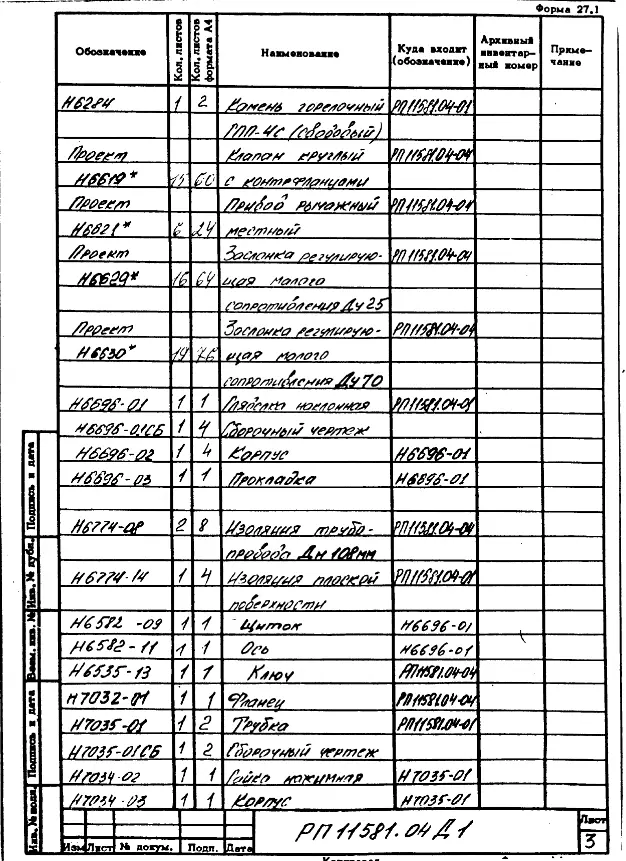 Форма 27.1
Обозначение Кол. листов Кол. листов формата А4 Наименование Куда входит (обозначение) Архивный инвентарный номер Примечание
Н6284 1 2 Камень горелочный РП11581.04-01
ГПП-4С (сводовый)
Проект Клапан круглый РП11581.04-04
Н6619* 15 60 с контрфланцами
Проект Привод рычажный РП11581.04-01
Н6621* 6 24 местный
Проект Заслонка регулирую- РП11581.04-04
Н6629* 16 64 щая малого
сопротивления Ду25
Проект Заслонка регулирую- РП11581.04-04
Н6630* 19 76 щая малого
сопротивления Ду70
Н6696-01 1 1 Гляделка наклонная РП11581.04-01
Н6696-01СБ 1 4 Сборочный чертеж
Н6696-02 1 4 Корпус Н6696-01
Н6696-03 1 1 Прокладка Н6696-01
Н6774-08 2 8 Изоляция трубо- РП11581.04-04
провода Дн 108мм
Н6774-14 1 4 Изоляция плоской РП11581.04-01
поверхности
Н6582-09 1 1 Щиток Н6696-01
Н6582-11 1 1 Ось Н6696-01
Н6535-13 1 1 Ключ РП11581.04-04
Н7032-01 1 1 Фланец РП11581.04-04
Н7035-01 1 2 Трубка РП11581.04-01
Н7035-01СБ 1 2 Сборочный чертеж
Н7034-02 1 1 Гайка нажимная Н7035-01
Н7034-03 1 1 Корпус Н7035-01
Инв. № подл. Подпись и дата Взам. инв. № Инв. № дубл. Подпись и дата
Изм Лист № докум. Подп. Дата
РП11581.04Д1
Лист
3